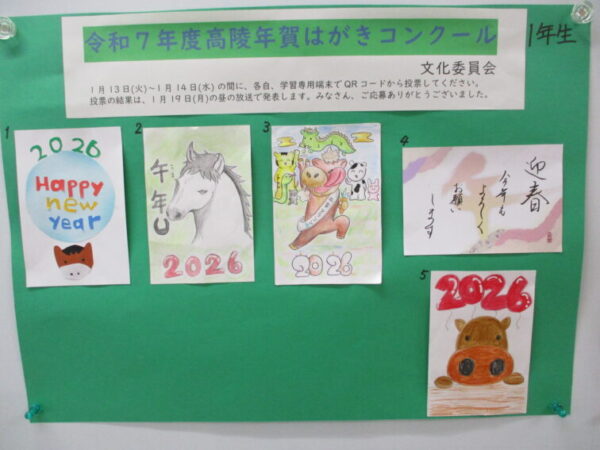 令和7年度高陵年賀はがきコンクール
1年生
文化委員会
1月13日(火)~1月14日(水)の間に、各自、学習専用端末でQRコードから投票してください。
投票の結果は、1月19日(月)の昼の放送で発表します。みなさん、ご応募ありがとうございました。
1
2026
Happy
new
year
2
午年
2026
3
2026
4
迎春
今年も
よろしく
お願い
します
5
2026